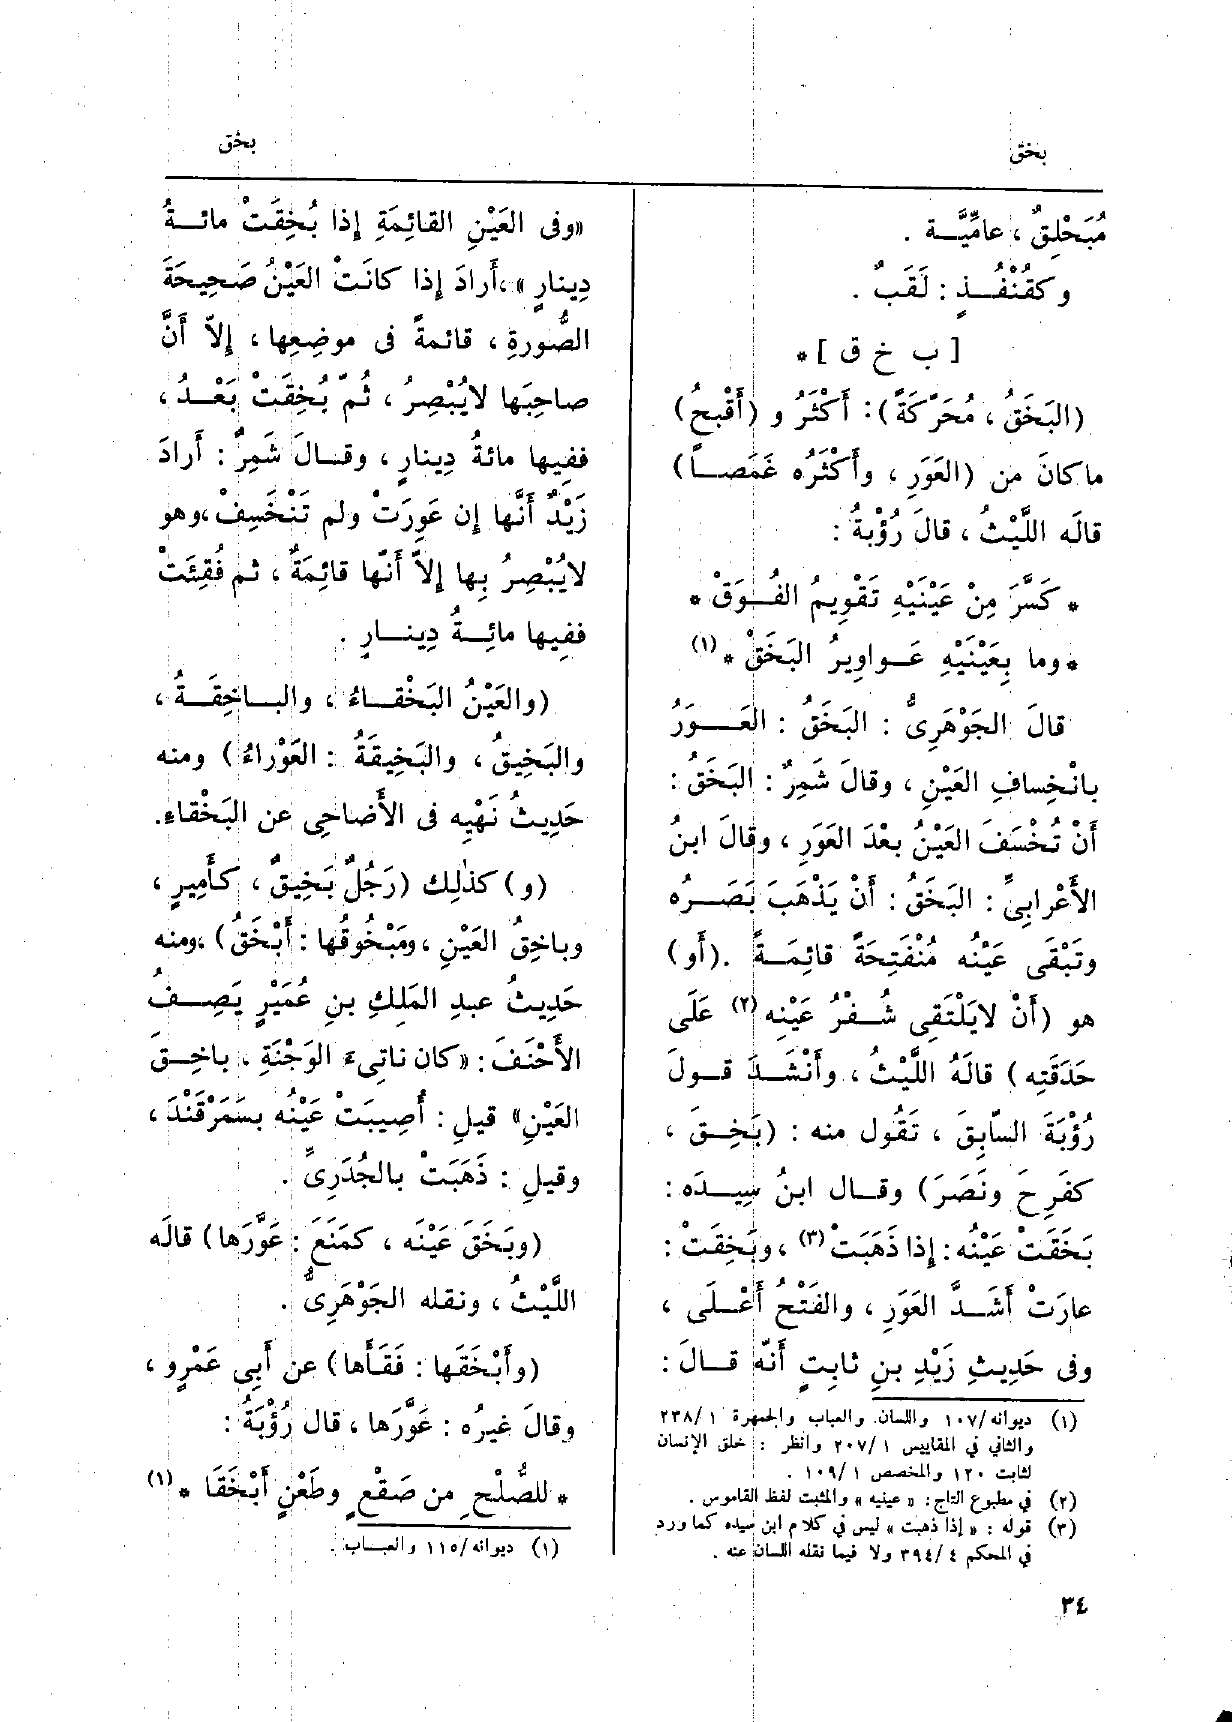 بخق
بخق
مُبَحْلِقٌ ، عامِّيَّـــة .
وكقُنْفُـــذٍ : لَقَبٌ .
[ ب خ ق ] *
(البَخَقُ ، مُحَرَّكَةً) : أَكْثَرُ و (أَقْبحُ)
ما كانَ من (العَوَرِ ، وأَكْثَرُه غَمَصــاً)
قالَه اللَّيْثُ ، قالَ رُؤْبةُ :
* كَسَّرَ مِنْ عَيْنَيْهِ تَقْوِيمُ الفُــوَقْ *
* وما بِعَيْنَيْهِ عَــواوِيرُ البَخَقْ * (١)
قالَ الجَوْهَرِىُّ : البَخَقُ : العَـــوَرُ
بانْخِسافِ العَيْنِ ، وقالَ شَمِرٌ : البَخَقُ :
أَنْ تُخْسَفَ العَيْنُ بعْدَ العَوَرِ ، وقالَ ابنُ
الأَعْرابىِّ : البَخَقُ : أَنْ يَذْهَبَ بَصَــرُه
وتَبْقَى عَيْنُه مُنْفَتِحَةً قائِمَــةً . (أَو)
هو (أَنْ لايَلْتَقِى شُــفْرُ عَيْنِه (٢) عَلَى
حَدَقَتِه) قالَهُ اللَّيْثُ ، وأَنْشَــدَ قــولَ
رُؤْبَةَ السّابِقَ ، تَقُول منه : (بَخِــقَ ،
كفَرِحَ ونَصَرَ) وقــال ابنُ سِيــدَه :
بَخَقَتْ عَيْنُه : إذا ذَهَبَتْ (٣) ، وبَخِقَتْ :
عارَتْ أَشَــدَّ العَوَرِ ، والفَتْحُ أَعْــلَى ،
وفى حَدِيثِ زَيْدِ بنِ ثابِتٍ أَنّه قــالَ :
(١) ديوانه/١٠٧ واللسان. والعباب والجمهرة ٢٣٨/١
والثاني في المقاييس ٢٠٧/١ وانظر : خلق الإنسان
لثابت ١٢٠ والمخصص ١٠٩/١ .
(٢) في مطبوع التاج : « عينيه » والمثبت لفظ القاموس .
(٣) قوله : « إذا ذهبت » ليس في كلام ابن سيده كما ورد
في المحكم ٣٩٤/٤ ولا فيما نقله اللسان عنه .
«وفى العَيْنِ القائِمَةِ إذا بُخِقَتْ مائــةُ
دِينارٍ » ،أَرادَ إذا كانَتْ العَيْنُ صَحِيحَةَ
الصُّورةِ ، قائمةً فى موضِعِها ، إلاّ أَنَّ
صاحِبَها لايُبْصِرُ ، ثُمّ بُخِقَتْ بَعْــدُ ،
ففِيها مائةُ دِينارٍ ، وقــالَ شَمِرٌ : أَرادَ
زَيْدٌ أَنَّها إن عَوِرَتْ ولم تَنْخَسِفْ ،وهو
لايُبْصِرُ بِها إلاّ أَنّها قائِمَةٌ ، ثم فُقِئَتْ
ففِيها مائِــةُ دِينــارٍ .
(والعَيْنُ البَخْقــاءُ ، والبــاخِقَــةُ ،
والبَخِيقُ ، والبَخِيقَةُ : العَوْراءُ) ومنه
حَدِيثُ نَهْيِه فى الأَضاحِى عن البَخْقاءِ.
(و) كذٰلِك (رَجُلٌ بَخِيقٌ ، كأَمِيرٍ ،
وباخِقُ العَيْنِ ،ومَبْخُوقُها : أَبْخَقُ) ،ومنه
حَدِيثُ عبدِ المَلِكِ بنِ عُمَيْرٍ يَصِــفُ
الأَحْنَفَ : « كان ناتِىءَ الوَجْنَةِ ، باخِــقَ
العَيْنِ» قيلِ : أُصِيبَتْ عَيْنُه بسَمَرْقَنْدَ ،
وقيلِ : ذَهَبَتْ بالجُدَرِىِّ .
(وبَخَقَ عَيْنَه ، كمَنَعَ : عَوَّرَها) قالَه
اللَّيْثُ ، ونقله الجَوْهَرِىُّ .
(وأَبْخَقَها : فَقَأَها) عن أَبِى عَمْرٍو ،
وقالَ غيرُه : عَوَّرَها ، قال رُؤْبَةُ :
* للصُّلْحِ من صَقْعٍ وطَعْنٍ أَبْخَقَا * (١)
(١) ديوانه/١١٥ والعبــاب .
٣٤